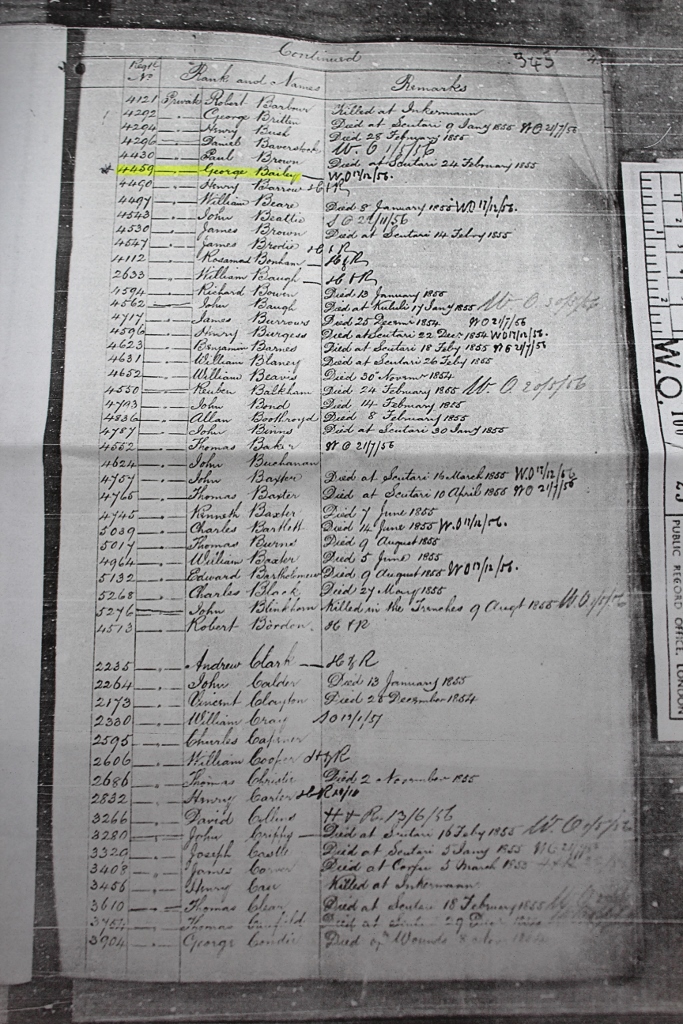 Continued 345
Regtl No. Rank and Names Remarks
4121 Private Robert Barbour Killed at Inkermann
4202 George Britten Died at Scutari 9 Jany 1855 WO 21/7/56
4294 Henry Bush Died 28 February 1855
4296 Daniel W.O 1/5/56
4430 Paul Brown Died at Scutari 24 February 1855
4459 George Bailey W.O 17/12/56.
4490 Henry Barrow H & R
4497 William Beare Died 8 January 1855 W.O 17/12/56.
4543 John Beattie S O 29/11/56
4530 James Brown Died at Scutari 14 Feby 1855
4547 James Brodie H & R
4112 Rosamod Bonham H & R
2633 William Baugh H & R
4594 Richard Bowen Died 13 January 1855
4562 John Baugh Died at Kululi 17 Jany 1855 W.O. 20/5/56
4717 James Burrows Died 25 Decemr 1854 WO 21/7/56
4596 Henry Burgess Died at Scutari 22 Decr 1854 W.O 17/12/56.
4623 Benjamin Barnes Died at Scutari 18 Feby 1855 WO 21/7/56
4631 William Blaney Died at Scutari 26 Feby 1855
4652 William Beavis Died 30 Novemr 1854
4550 Reuben Balkham Died 24 February 1855 W.O. 20/5/56
4793 John Bond Died 14 February 1855
4836 Allan Boothroyd Died 8 February 1855
4787 John Binns Died at Scutari 30 Jany 1855
4552 Thomas Baker WO 21/7/56
4624 John Buchanan
4757 John Baxter Died at Scutari 16 March 1855 W.O 17/12/56
4765 Thomas Baxter Died at Scutari 10 April 1855 WO 21/7/56
4745 Kenneth Baxter Died 7 June 1855
5039 Charles Bartlett Died 14 June 1855 W.O 17/12/56.
5017 Thomas Burns Died 9 August 1855
4964 William Baxter Died 5 June 1855
5132 Edward Bartholomew Died 9 August 1855 W.O 17/12/56.
5268 Charles Black Died 27 May 1855
5276 John Blinkhorn Killed in the Trenches 9 Augt 1855 W.O 1/5/56
4513 Robert Bordon H & R
2235 Andrew Clark H & R
2264 John Calder Died 13 January 1855
2173 Vincent Clayton Died 28 December 1854
2330 William Craig S O 13/1/57
2595 Charles
2606 William Cooper H & R
2686 Thomas Christie Died 2 November 1855
2832 Henry Carter H & R
3266 David Collins H & R 13/6/56
3280 John Died at Scutari 16 Feby 1855 W.O
3320 Joseph Castle Died at Scutari 5 Jany 1855 WO
3408 James Died at 5 March 1855
3456 Henry Killed at Inkermann
3610 Thomas Died at Scutari 18 February 1855
Thomas Died at
3904 George Condie Died of Wounds 8
W.O. 100/
PUBLIC RECORD OFFICE, LONDON